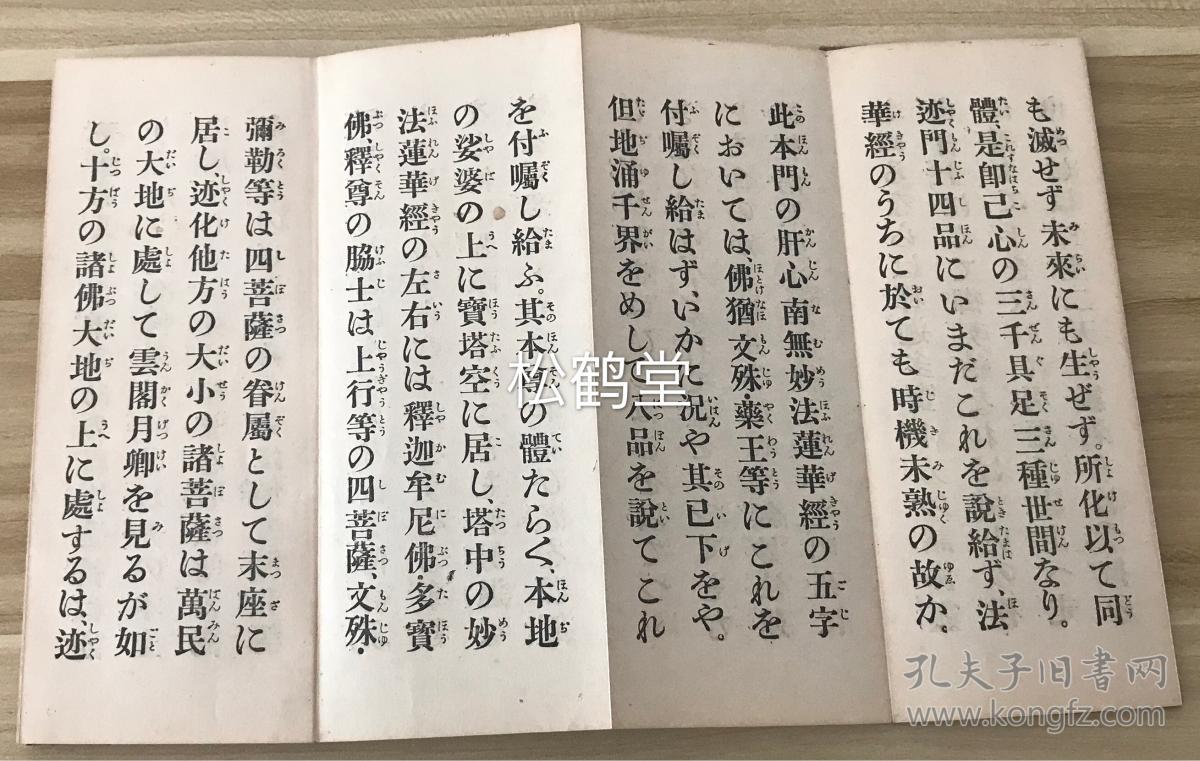 も滅せず未來にも生ぜず。所化以て同
體、是即己心の三千具足三種世間なり。
迹門十四品にいまだこれを說給ず、法
華經のうちに於ても時機未熟の故か。
此本門の肝心南無妙法蓮華經の五字
においては、佛猶文殊・藥王等にこれを
付囑し給はず、いかに況や其已下をや。
但地涌千界をめして八品を說てこれ
を付囑し給ふ。其本尊の體たらく、本地
の娑婆の上に寶塔空に居し、塔中の妙
法蓮華經の左右には釋迦牟尼佛・多寶
佛、釋尊の脇士は上行等の四菩薩、文殊・
彌勒等は四菩薩の眷屬として末座に
居し、迹化他方の大小の諸菩薩は萬民
の大地に處して雲閣月卿を見るが如
し。十方の諸佛大地の上に處するは、迹
松鹤堂
孔夫子旧书网
www.kongfz.com